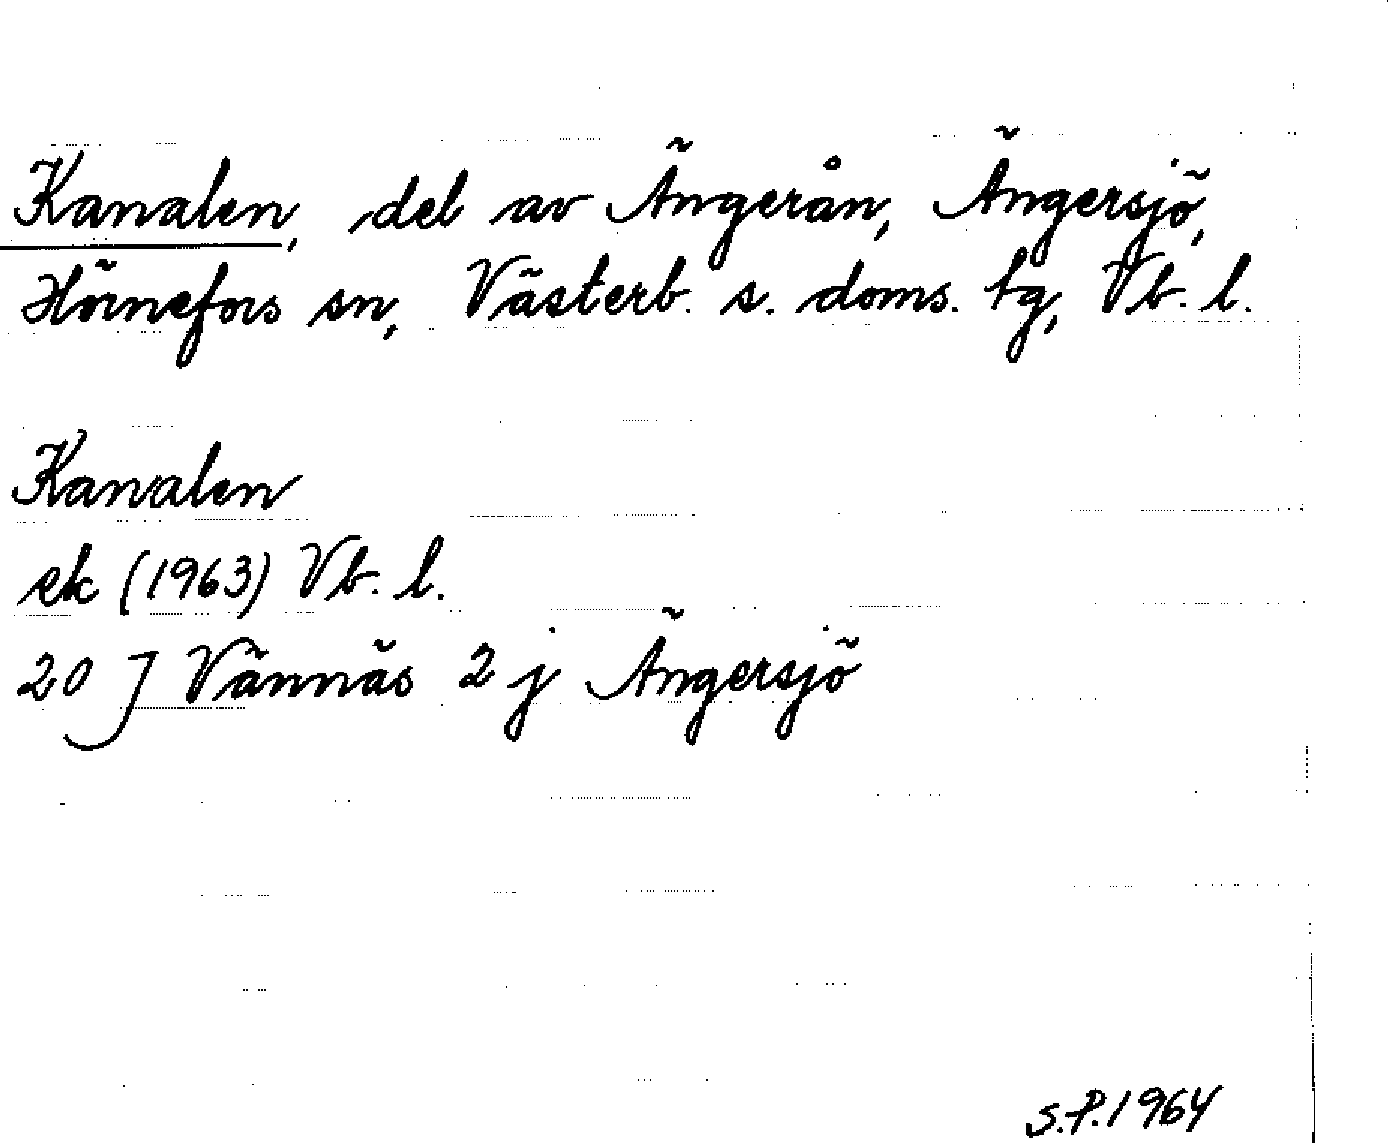 Kanalen, del av Ängerån, Ängersjö,
Hörnefors sn, Västerb. s. doms. tg, Vb. l.
Kanalen
ek (1963) Vb. l.
20 J Vännäs 2 j Ängersjö
S.P. 1964